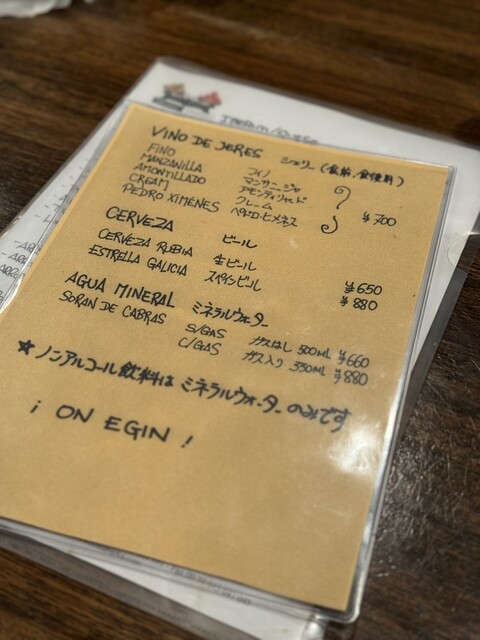 VINO DE JERES シェリー(食前、食後用)
FINO フィノ
MANZANILLA マンサニージャ
AMONTILLADO アモンティリャード
CREAM クレーム
PEDRO XIMÉNES ペドロ・ヒメネス ¥700
CERVEZA ビール
CERVEZA RUBIA 生ビール ¥650
ESTRELLA GALICIA スペインビール ¥880
AGUA MINERAL ミネラルウォーター
SORAN DE CABRAS S/GAS ガスなし 500ML ¥660
C/GAS ガス入り 330ML ¥880
★ノンアルコール飲料は ミネラルウォーターのみです
¡ ON EGIN !